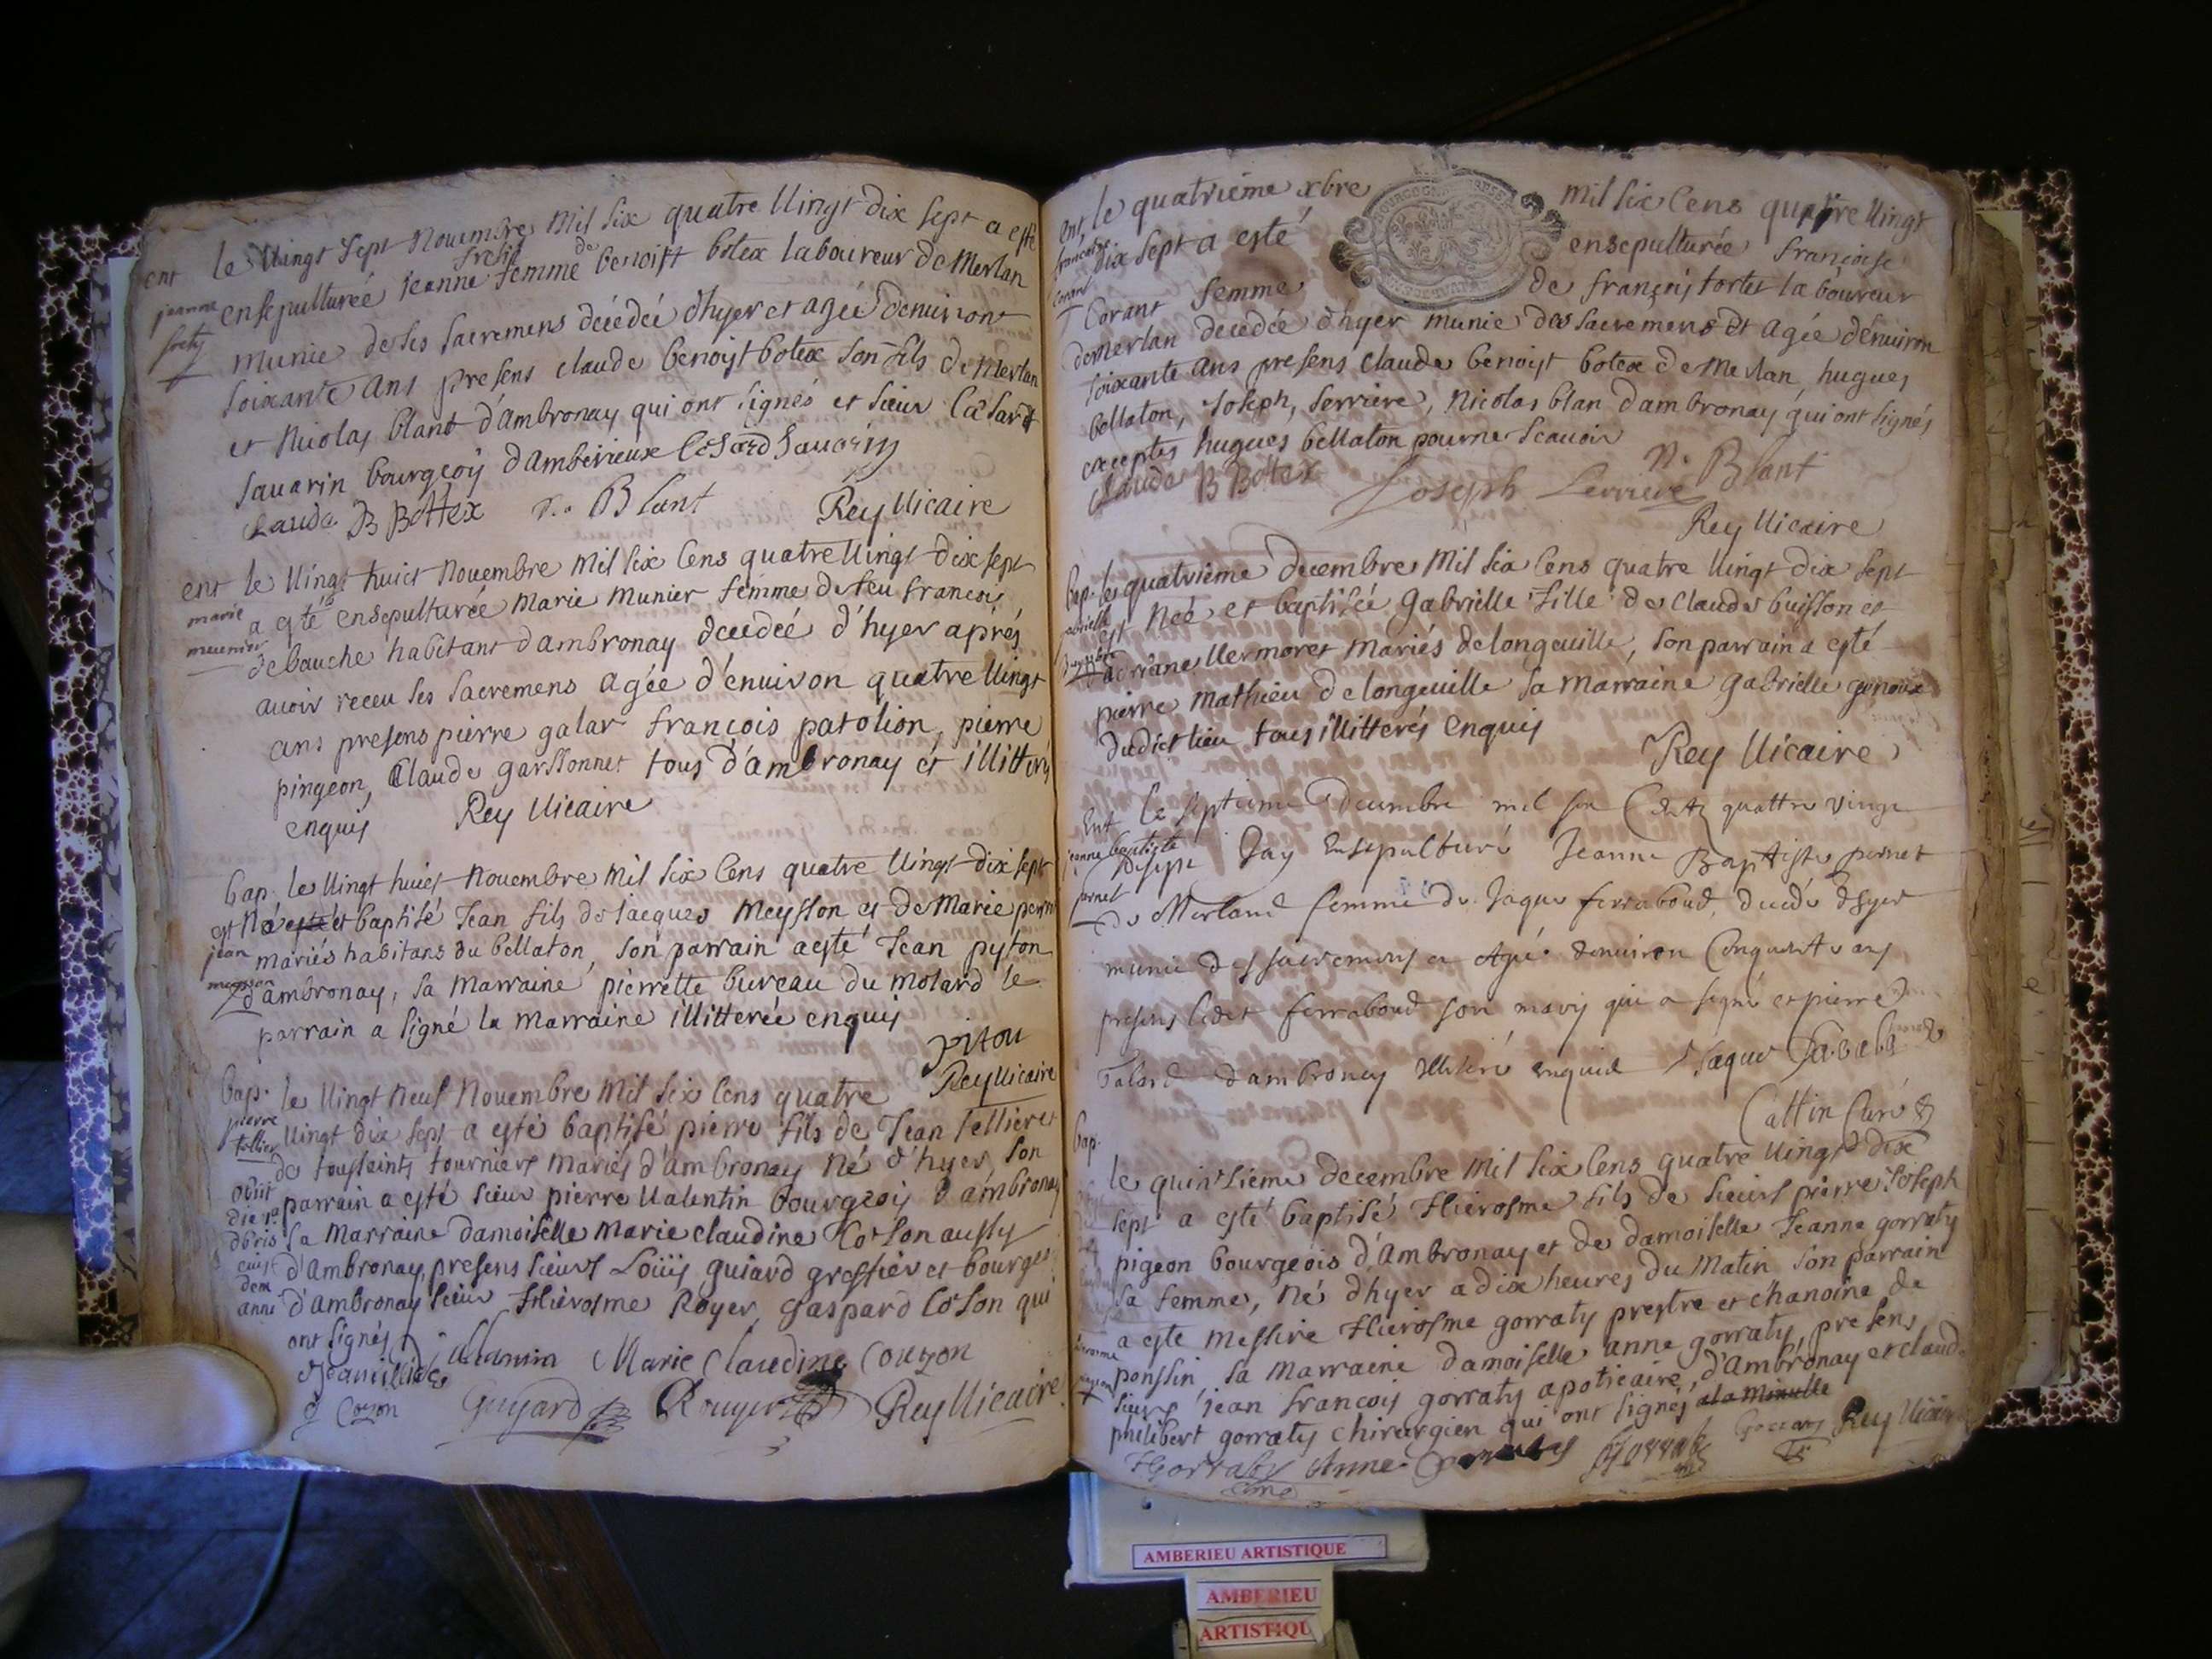 ent le Vingt sept Novembre Mil six quatre Vingt dix sept a esté
jeanne
frety
ensepulturée jeanne frety femme de benoist botex laboureur de Merlan
munie de ses sacremens décédée d'hyer et agée d'environ
soixante ans presens claude benoist botex son fils de Merlan
et Nicolas blanc d'Ambronay qui ont signés et sieur César
Savarin bourgeois d'amberieux Cesard Savarin
Claude B Bottex n. Blant Rey Vicaire
ent le Vingt huict Novembre Mil six Cens quatre Vingt dix sept
marie
meunier
a esté ensepulturée Marie Munier femme de feu francois
debauche habitant d'ambronay décédée d'hyer aprés
avoir receu ses sacremens agée d'environ quatre Vingt
ans presens pierre galar françois patolion, pierre
pingeon, Claude garssonnet tous d'ambronay et illitterés
enquis Rey Vicaire
bap. le Vingt huict Novembre Mil six Cens quatre Vingt dix sept
est Né et baptisé Jean fils de Jacques Meysson et de Marie
jean
meysson
mariés habitans du bellaton, son parrain a esté Jean pyton
d'ambronay, sa Marraine pierrette bureau du molard le
parrain a signé la Marraine illitterée enquis
pitou
Rey Vicaire
bap. le Vingt Neuf Novembre Mil six Cens quatre
pierre
tellier
Vingt dix sept a esté baptisé pierre fils de Jean tellier et
de toussainte tournier mariés d'ambronay Né d'hyer, son
obiit
die 1a
parrain a esté sieur pierre Valentin bourgeois d'ambronay
sa Marraine damoiselle Marie claudine Coson aussy
d'Ambronay, presens sieurs Loüis guiard greffier et bourgeois
anni
d'ambronay sieur Hierosme Royer, Gaspard Coson qui
ont signés
Marie Claudine Couzon
g Cozon Guyard Rouyer Rey Vicaire
ent, le quatriéme xbre mil six Cens quatre Vingt
francoise
Corant
dix sept a esté ensepulturée françoise
Corant femme de françois tortet laboureur
de Merlan décédée d'hyer munie des sacremens et agée d'environ
soixante ans presens claude benoist botex de Merlan, hugues
bellaton, Joseph, serriere, Nicolas blan d'ambronay qui ont signés
exceptés hugues bellaton pour ne scavoir
Claude B Bottex Joseph Serriere n. Blant
Rey Vicaire
bap. le quatriéme decembre Mil six Cens quatre Vingt dix sept
est Née et baptisée Gabrielle fille de Claude buisson et
adrianne Vermoret Mariés de longeville, son parrain a esté
pierre Mathieu de longeville sa Marraine Gabrielle genoux
dudict lieu tous illitterés enquis
Rey Vicaire
Ent Le septieme decembre mil six Cents quattre vingt
jeanne baptiste
pernet
dixsept Jay Ensepulturé Jeanne Baptiste pernet
de Merland femme de Jaque ferraboud, décédé dhyer
munie des sacremens et agée denviron Cinquante ans
presens ledit ferraboud son mary qui a signé et pierre
Galard dambronay illitéré enquis Jaque
Cattin Curé
bap.
le quinsiéme decembre Mil six Cens quatre Vingt dix
sept a esté baptisé Hierosme fils de sieur pierre Joseph
pigeon bourgeois d'Ambronay et de damoiselle Jeanne gorraty
sa femme, Né d'hyer a dix heures du Matin son parrain
a esté Messire Hierosme gorraty prestre et chanoine de
ponssin sa marraine damoiselle anne gorraty, presens
sieurs jean francois gorraty apoticaire, d'Ambronay et claude
philibert gorraty chirurgien qui ont signés a la Minutte
HGorraty Anne Gorraty Rey Vicaire
AMBERIEU ARTISTIQUE
AMBERIEU
ARTISTIQU